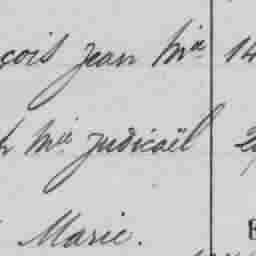 çois Jean Mie 14
h Mie Judicaël 2
Marie.